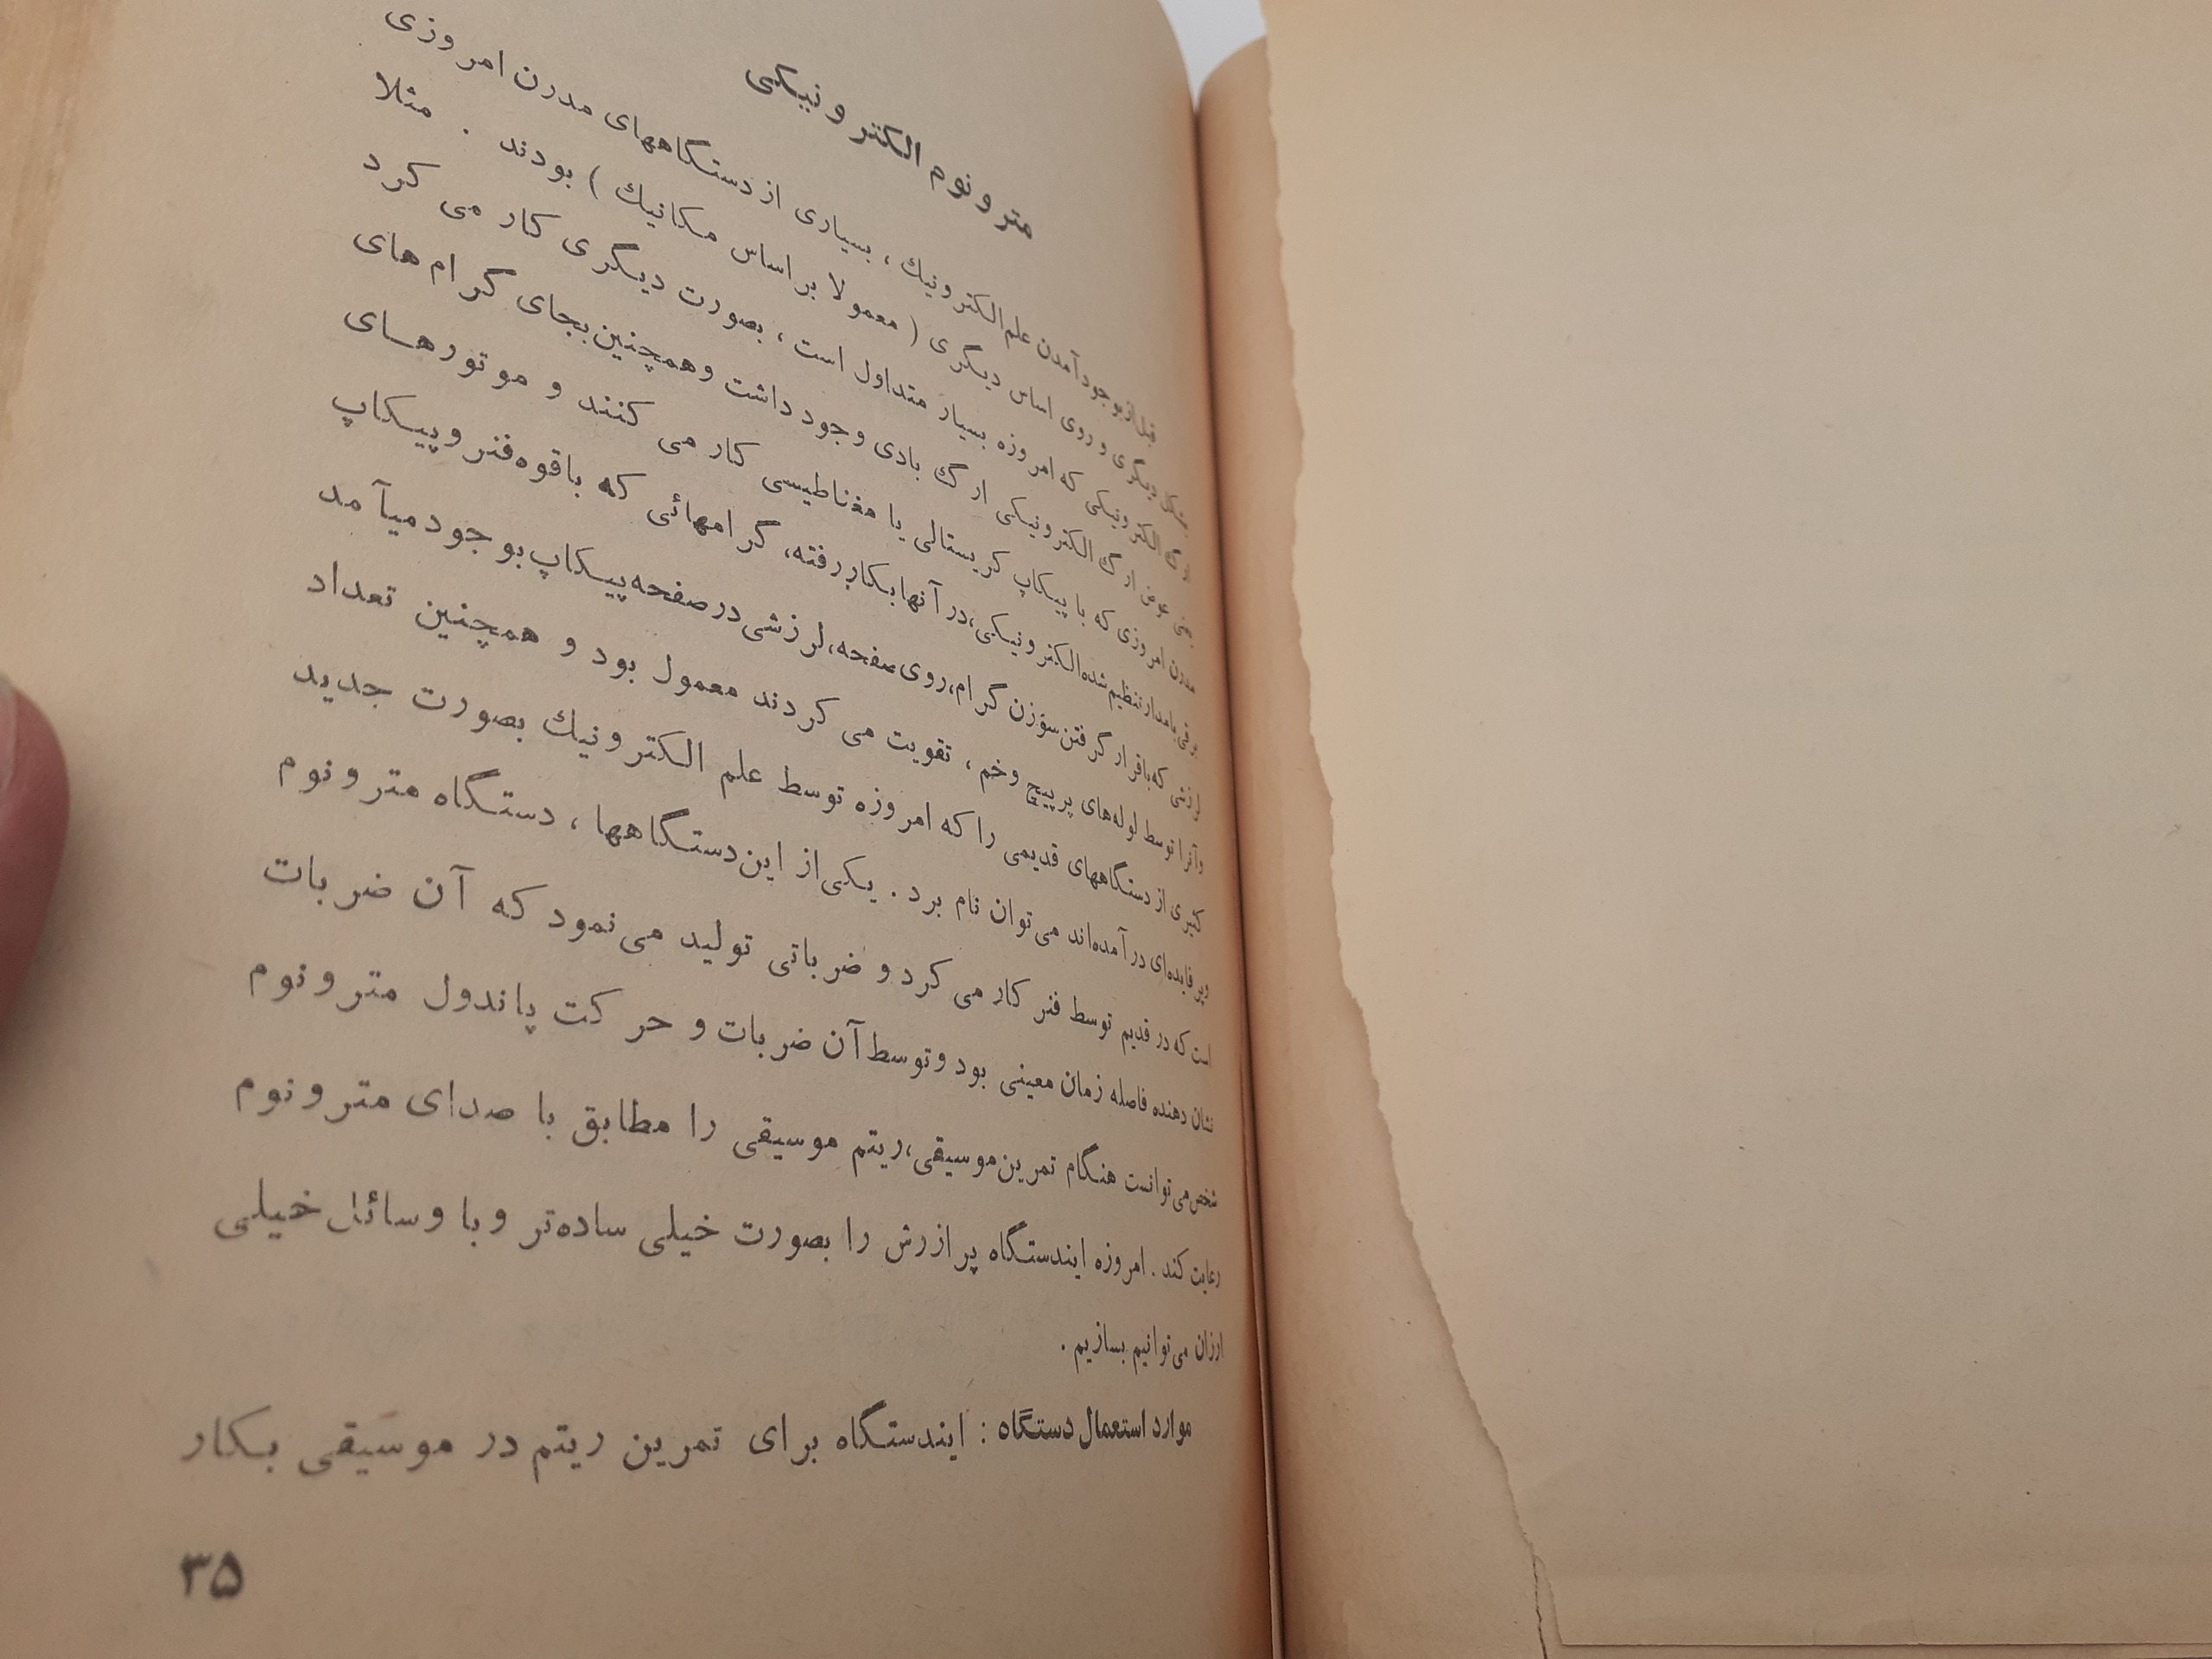 مترونوم الکترونیکی
قبل از بوجود آمدن علم الکترونیك ، بسیاری از دستگاههای مدرن امروزی
بشکل دیگری و روی اساس دیگری ( معمولا براساس مکانیك ) بودند . مثلا
ارگ الکترونیکی که امروزه بسیار متداول است ، بصورت دیگری کار می کرد
یعنی عوض ارگ الکترونیکی ارگ بادی وجود داشت و همچنین بجای گرام های
مدرن امروزی که با پیکاپ کریستالی یا مغناطیسی کار می کنند و موتورهای
برقی بامدار تنظیم شده الکترونیکی، در آنها بکار رفته، گرامهائی که باقوه فنر و پیکاپ
لرزشی که باقرار گرفتن سوزن گرام، روی صفحه، لرزشی در صفحه پیکاپ بوجود میآمد
و آنرا توسط لوله‌های پرپیچ وخم ، تقویت می کردند معمول بود و همچنین تعداد
کثیری از دستگاههای قدیمی را که امروزه توسط علم الکترونیك بصورت جدید
وپر فایده‌ای در آمده‌اند می‌توان نام برد . یکی از این دستگاهها ، دستگاه مترونوم
است که در قدیم توسط فنر کار می کرد و ضرباتی تولید می‌نمود که آن ضربات
نشان دهنده فاصله زمان معینی بود وتوسط آن ضربات و حرکت پاندول مترونوم
شخص می‌توانست هنگام تمرین موسیقی، ریتم موسیقی را مطابق با صدای مترونوم
رعایت کند . امروزه ایندستگاه پر ازرش را بصورت خیلی ساده‌تر و با وسائل خیلی
ارزان می‌توانیم بسازیم .
موارد استعمال دستگاه : ایندستگاه برای تمرین ریتم در موسیقی بکار
۳۵